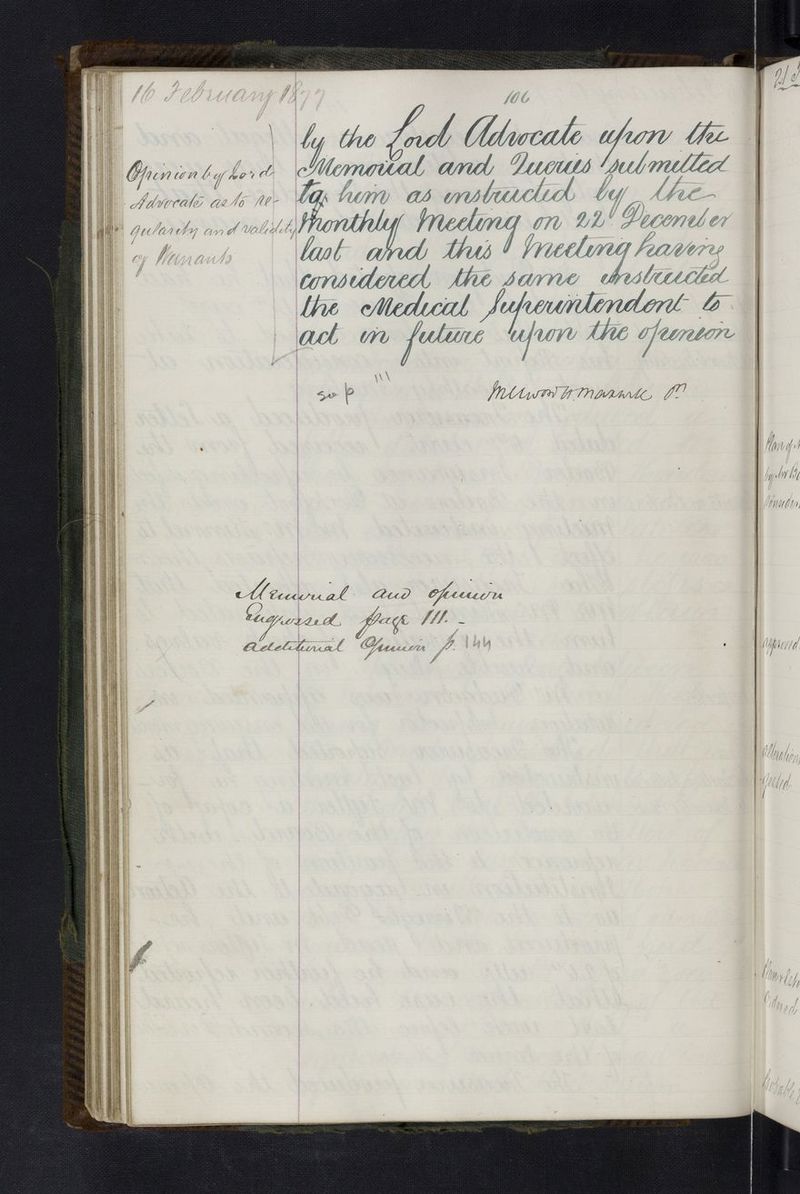 16 February 1877
106
by the Lord Advocate upon the
Memorial and Queries submitted
to him as instructed by the
Monthly Meeting on 22 December
last and this Meeting having
considered the same instructed
the Medical Superintendent to
act in future upon the opinion
Opinion by Lord
Advocate as to re-
gularity and validity
of Warrants
see p 111
Memorial and opinion
Engrossed page 111. -
additional Opinion p. 144
21
Plan of
approved